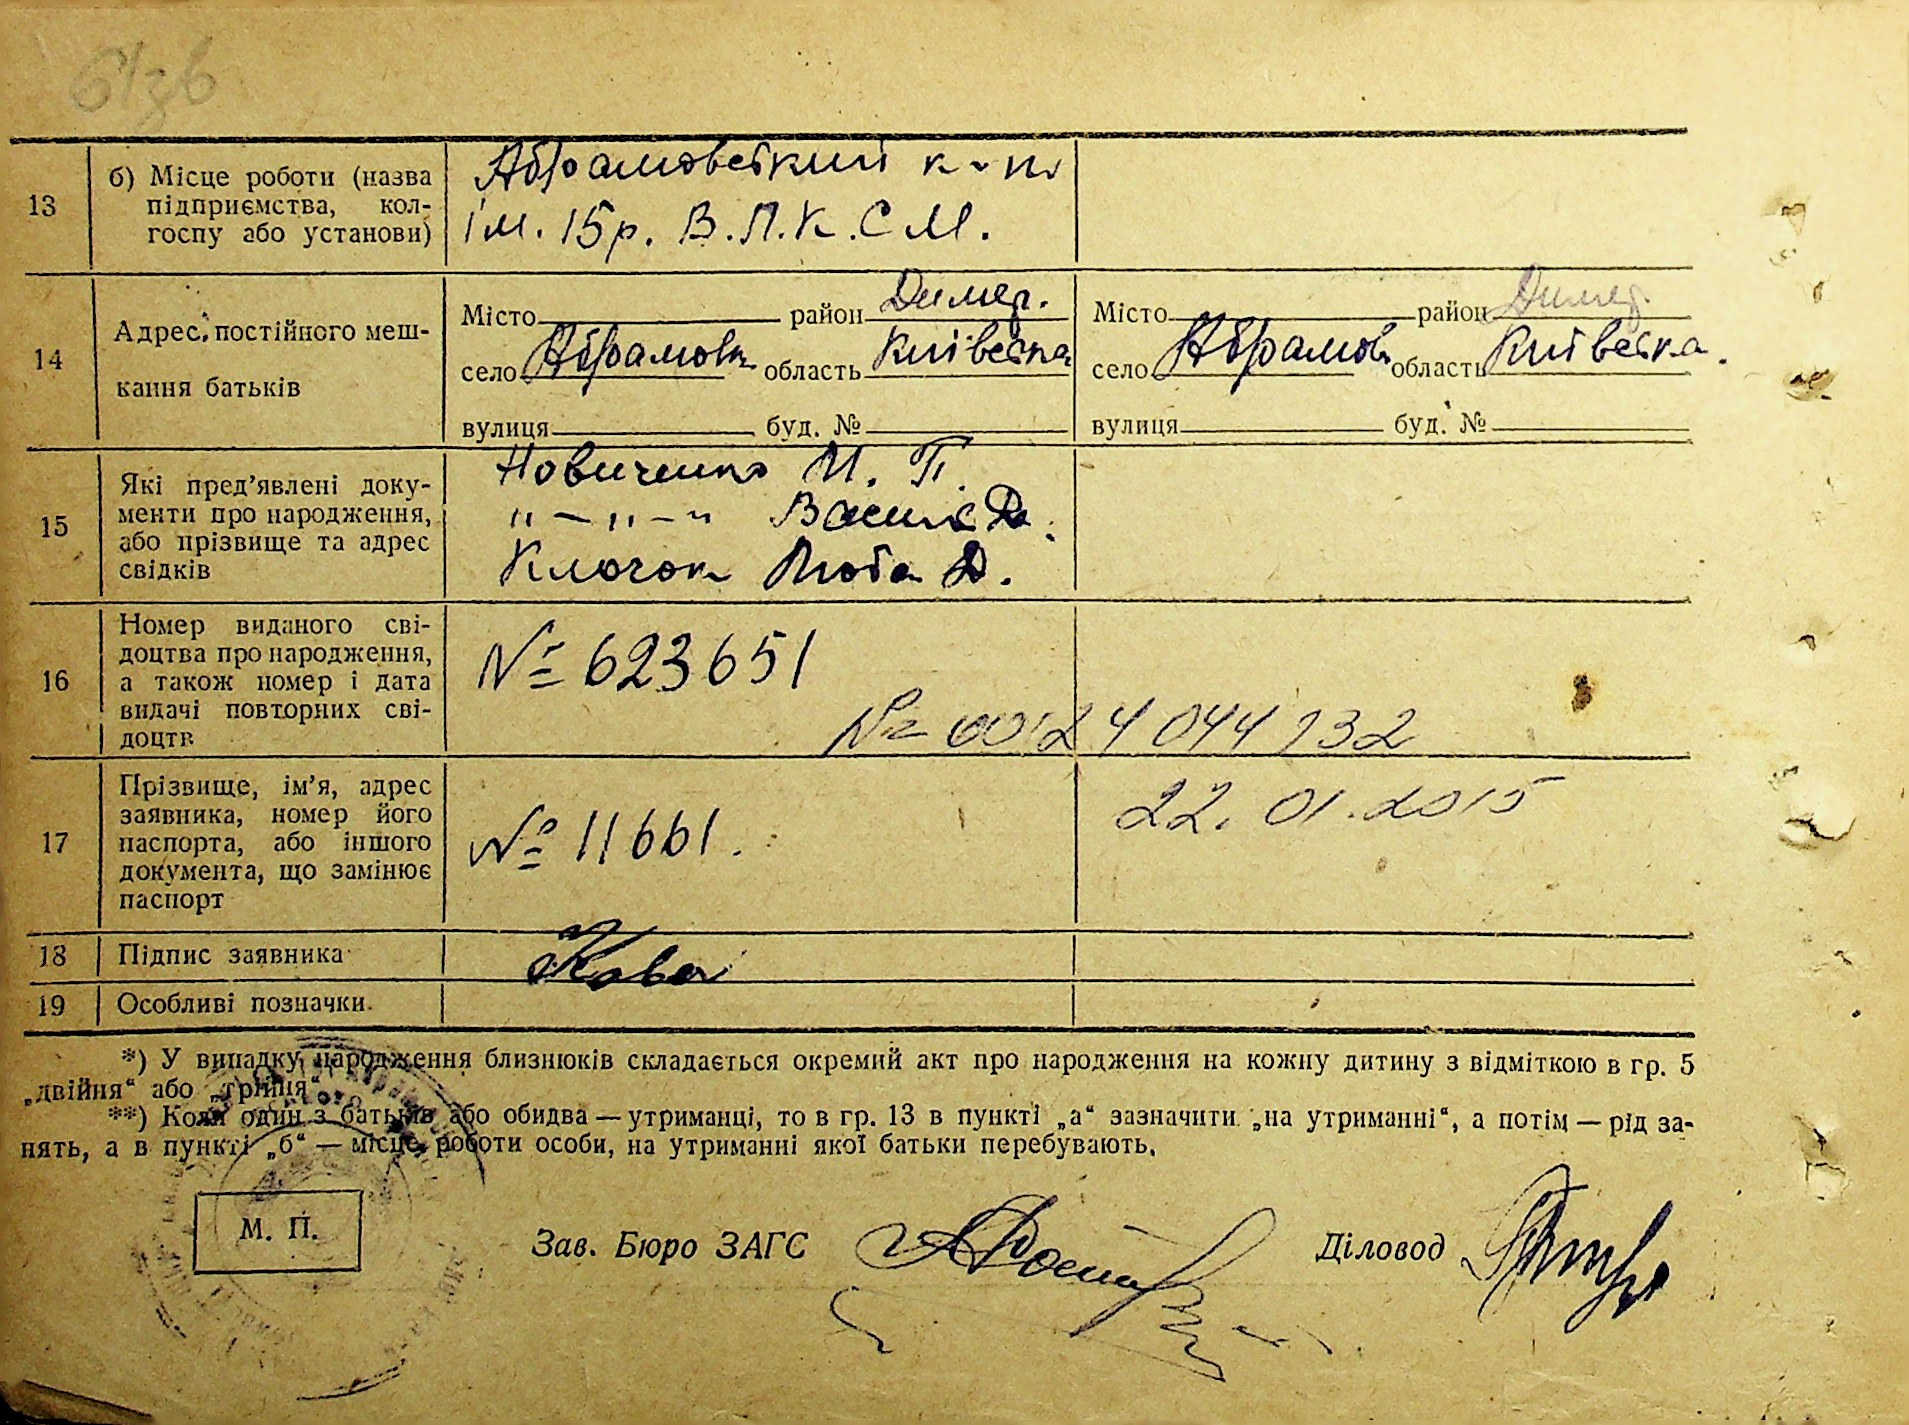 13 б) Місце роботи (назва підприємства, колгоспу або установи)
Абрамовський к-п
ім. 15 р. В.Л.К.С.М.
14 Адрес постійного мешкання батьків
Місто район Димер.
село Абрамовка область Київська
вулиця буд. №
Місто район Димер.
село Абрамовк область Київська.
вулиця буд. №
15 Які пред’явлені документи про народження, або прізвище та адрес свідків
Новиченко М. П.
"—"—" Василь Д.
Клочок Люба Д.
16 Номер виданого свідоцтва про народження, а також номер і дата видачі повторних свідоцтв
№ 623651
№ 00124044932
22.01.2015
17 Прізвище, ім’я, адрес заявника, номер його паспорта, або іншого документа, що замінює паспорт
№ 11661.
18 Підпис заявника
19 Особливі позначки.
*) У випадку народження близнюків складається окремий акт про народження на кожну дитину з відміткою в гр. 5
„двійня“ або „трійня“
**) Коли один з батьків або обидва — утриманці, то в гр. 13 в пункті „а“ зазначити „на утриманні“, а потім — рід за-
нять, а в пункті „б“ — місце роботи особи, на утриманні якої батьки перебувають.
М. П.
Зав. Бюро ЗАГС
Діловод